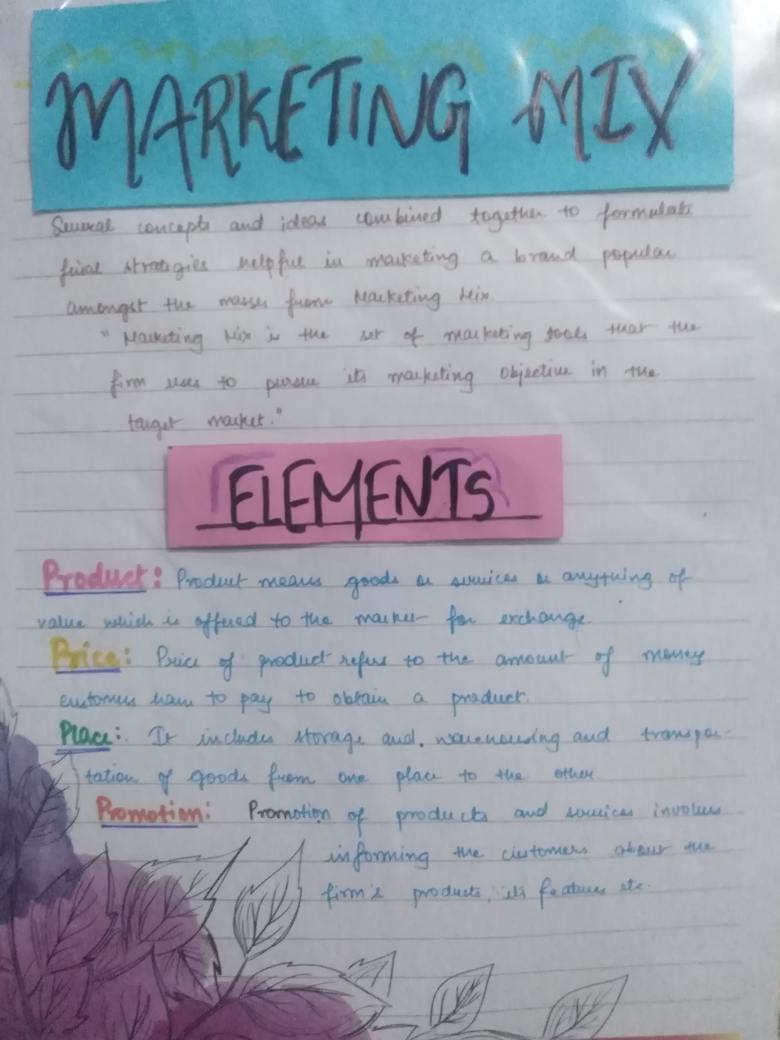 MARKETING MIX
Several concepts and ideas combined together to formulate
final stratigies helpful in marketing a brand popular
amongst the masses from Marketing Mix.
" Marketing Mix is the set of marketing tools that the
firm uses to pursue its marketing objective in the
target market."
ELEMENTS
Product: Product means goods or services or anything of
value which is offered to the market for exchange
Price: Price of product refers to the amount of money
customers have to pay to obtain a product.
Place: It includes storage and, warehousing and transpor-
tation of goods from one place to the other.
Promotion: Promotion of products and services involves
informing the customers about the
firm's products, its features etc.